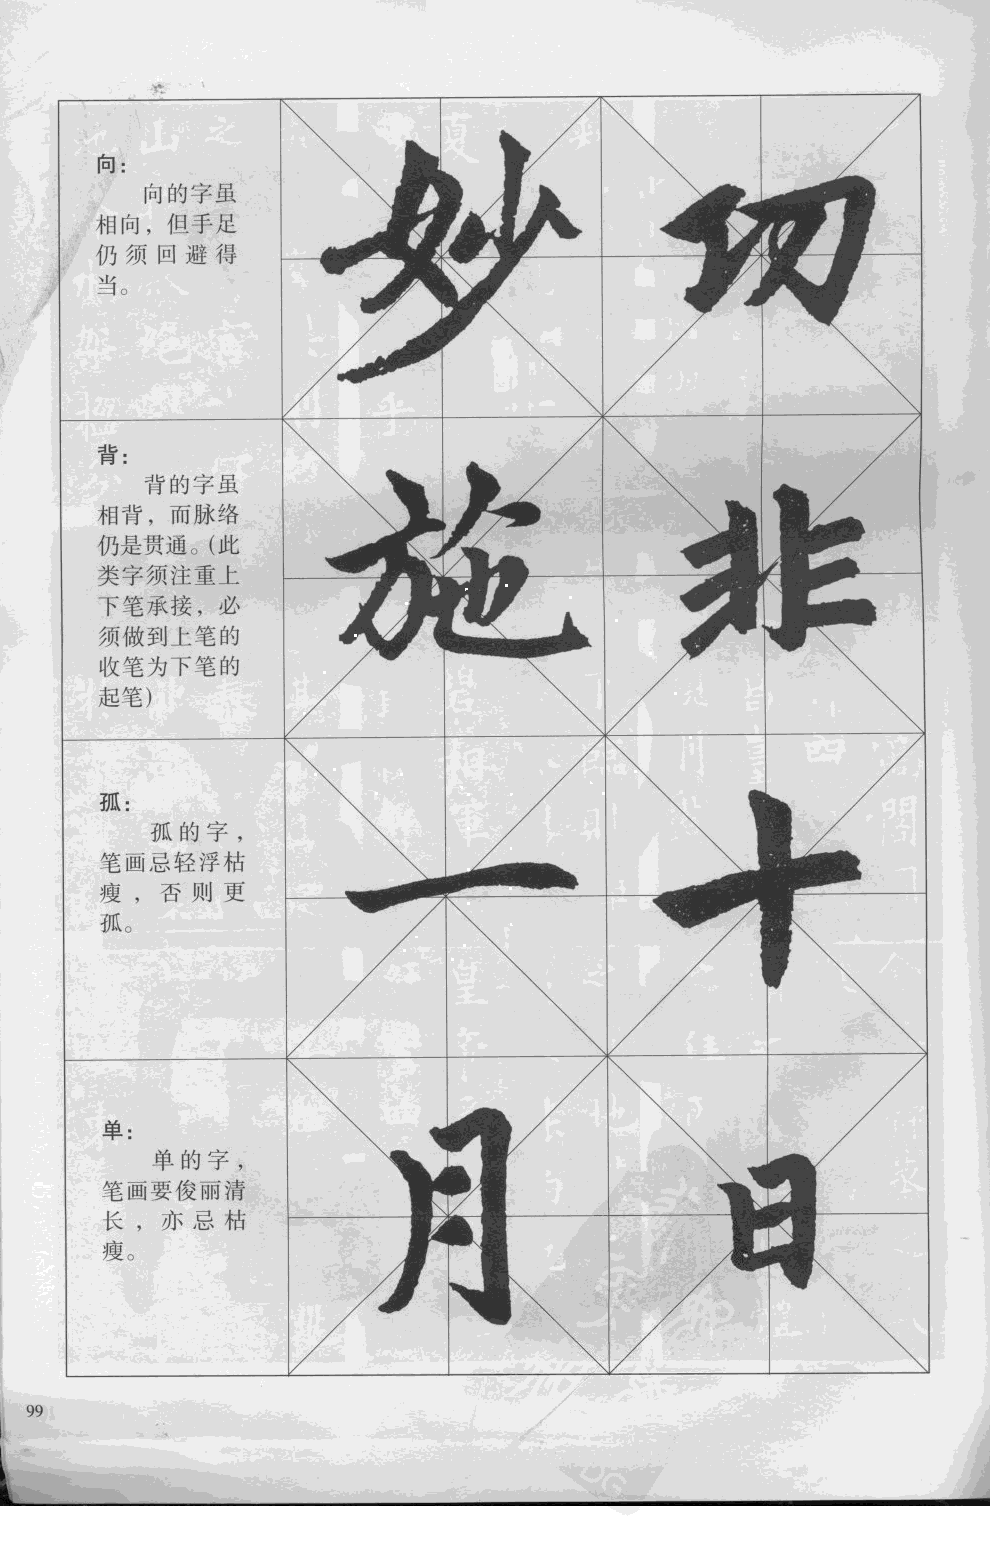 向：
向的字虽
相向，但手足
仍须回避得
当。
妙 切
背：
背的字虽
相背，而脉络
仍是贯通。（此
类字须注重上
下笔承接，必
须做到上笔的
收笔为下笔的
起笔）
施 非
孤：
孤的字，
笔画忌轻浮枯
瘦，否则更
孤。
一 十
单：
单的字，
笔画要俊丽清
长，亦忌枯
瘦。
月 日
99